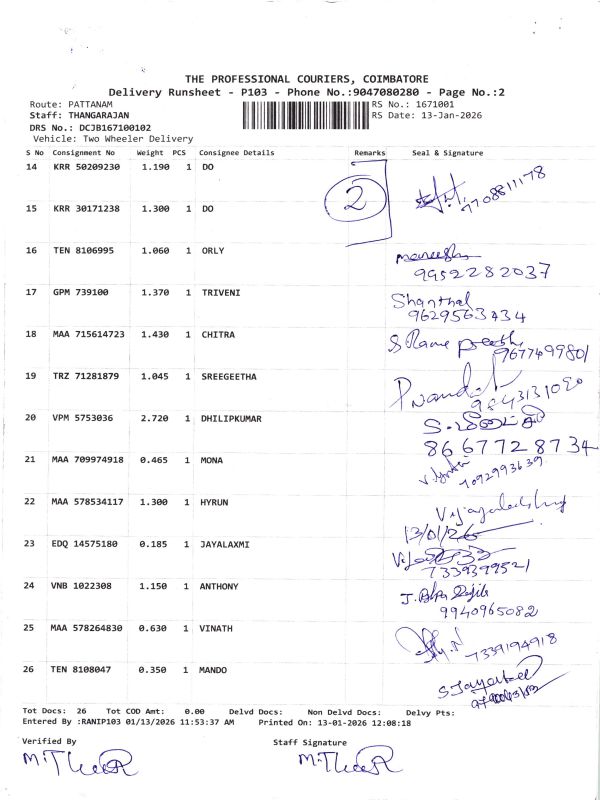 THE PROFESSIONAL COURIERS, COIMBATORE
Delivery Runsheet - P103 - Phone No.:9047080280 - Page No.:2
Route: PATTANAM
RS No.: 1671001
Staff: THANGARAJAN
RS Date: 13-Jan-2026
DRS No.: DCJB167100102
Vehicle: Two Wheeler Delivery
S No Consignment No Weight PCS Consignee Details Remarks Seal & Signature
14 KRR 50209230 1.190 1 DO
2
7708811178
15 KRR 30171238 1.300 1 DO
16 TEN 8106995 1.060 1 ORLY
9952282037
17 GPM 739100 1.370 1 TRIVENI Shanthal
9629563434
18 MAA 715614723 1.430 1 CHITRA
9677499801
19 TRZ 71281879 1.045 1 SREEGEETHA
9843131090
20 VPM 5753036 2.720 1 DHILIPKUMAR
8667728734
21 MAA 709974918 0.465 1 MONA
7092993639
22 MAA 578534117 1.300 1 HYRUN
13/01/26
23 EDQ 14575180 0.185 1 JAYALAXMI
7339399521
24 VNB 1022308 1.150 1 ANTHONY
9940965082
25 MAA 578264830 0.630 1 VINATH
7339194918
26 TEN 8108047 0.350 1 MANDO
Tot Docs: 26 Tot COD Amt: 0.00 Delvd Docs: Non Delvd Docs: Delvy Pts:
Entered By :RANIP103 01/13/2026 11:53:37 AM Printed On: 13-01-2026 12:08:18
Verified By Staff Signature